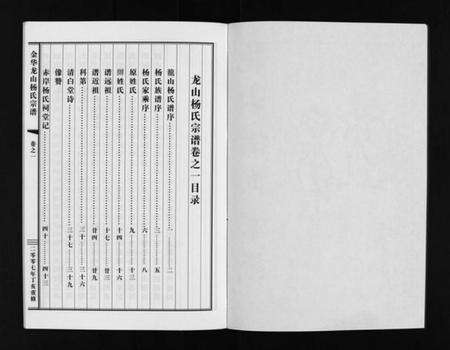 龙山杨氏宗谱卷之一目录
龍山杨氏谱序 一 二
杨氏族谱序 三 五
杨氏家乘序 六 八
原姓氏 九 十三
姓氏 十四 十六
谱远祖 十七 廿三
谱近祖 廿四 廿九
科第 三十 三十六
清白堂诗 三十七 三十九
像赞
赤岸杨氏祠堂记 四十 四十三
金华龙山杨氏宗谱 卷之一 二〇〇七年丁亥重修